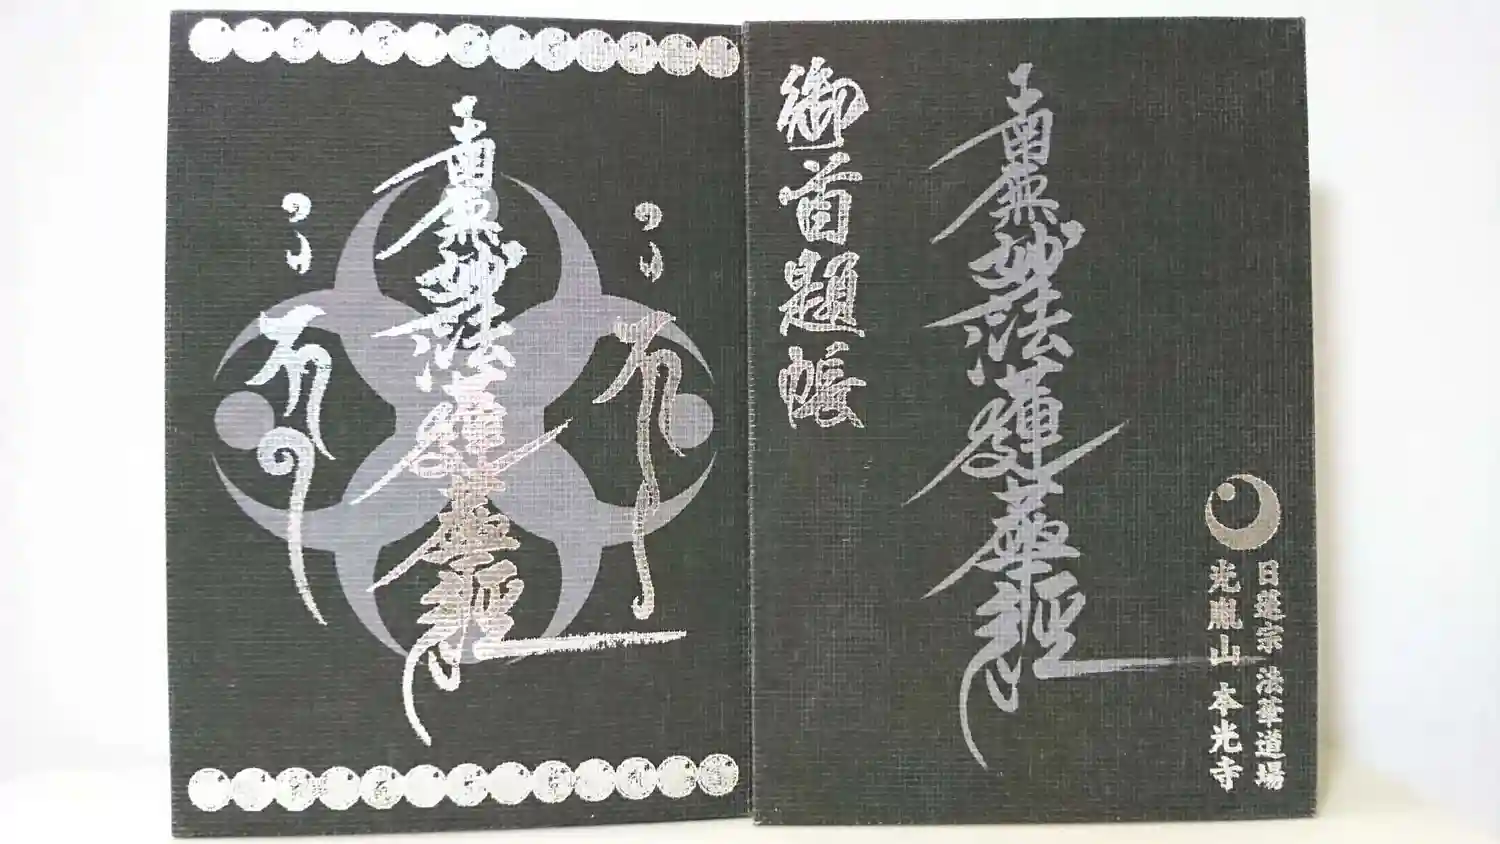 南無妙法蓮華経
御首題帳
南無妙法蓮華経
日蓮宗 法華道場
光胤山 本光寺